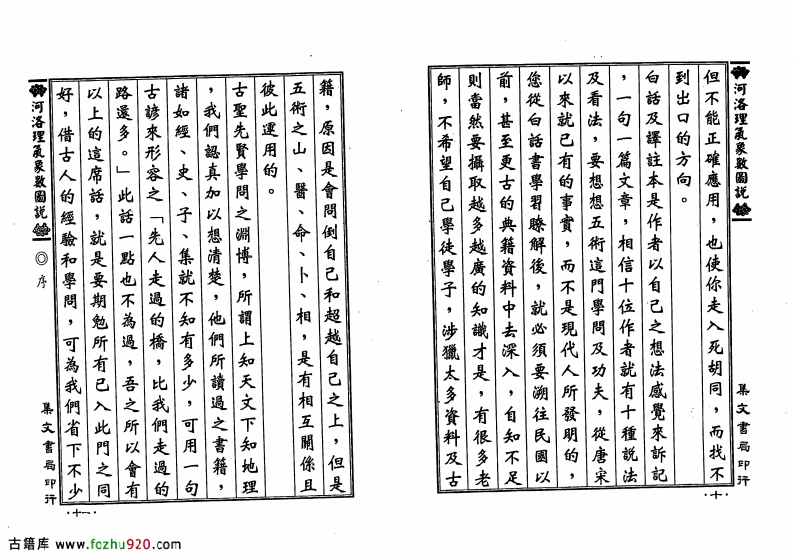 但不能正確應用，也使你走入死胡同，而找不
到出口的方向。
白話及譯註本是作者以自己之想法感覺來訴記
，一句一篇文章，相信十位作者就有十種說法
及看法，要想想五術這門學問及功夫，從唐宋
以來就已有的事實，而不是現代人所發明的，
您從白話書學習瞭解後，就必須要溯往民國以
前，甚至更古的典籍資料中去深入，自知不足
則當然要攝取越多越廣的知識才是，有很多老
師，不希望自己學徒學子，涉獵太多資料及古
河洛理氣象數圖說
集文書局印行
·十·
籍，原因是會問倒自己和超越自己之上，但是
五術之山、醫、命、卜、相，是有相互關係且
彼此運用的。
古聖先賢學問之淵博，所謂上知天文下知地理
，我們認真加以想清楚，他們所讀過之書籍，
諸如經、史、子、集就不知有多少，可用一句
古諺來形容之「先人走過的橋，比我們走過的
路還多。」此話一點也不為過，吾之所以會有
以上的這席話，就是要期勉所有已入此門之同
好，借古人的經驗和學問，可為我們省下不少
河洛理氣象數圖說
◎序
集文書局印行
·十一·
古籍库 www.fozhu920.com